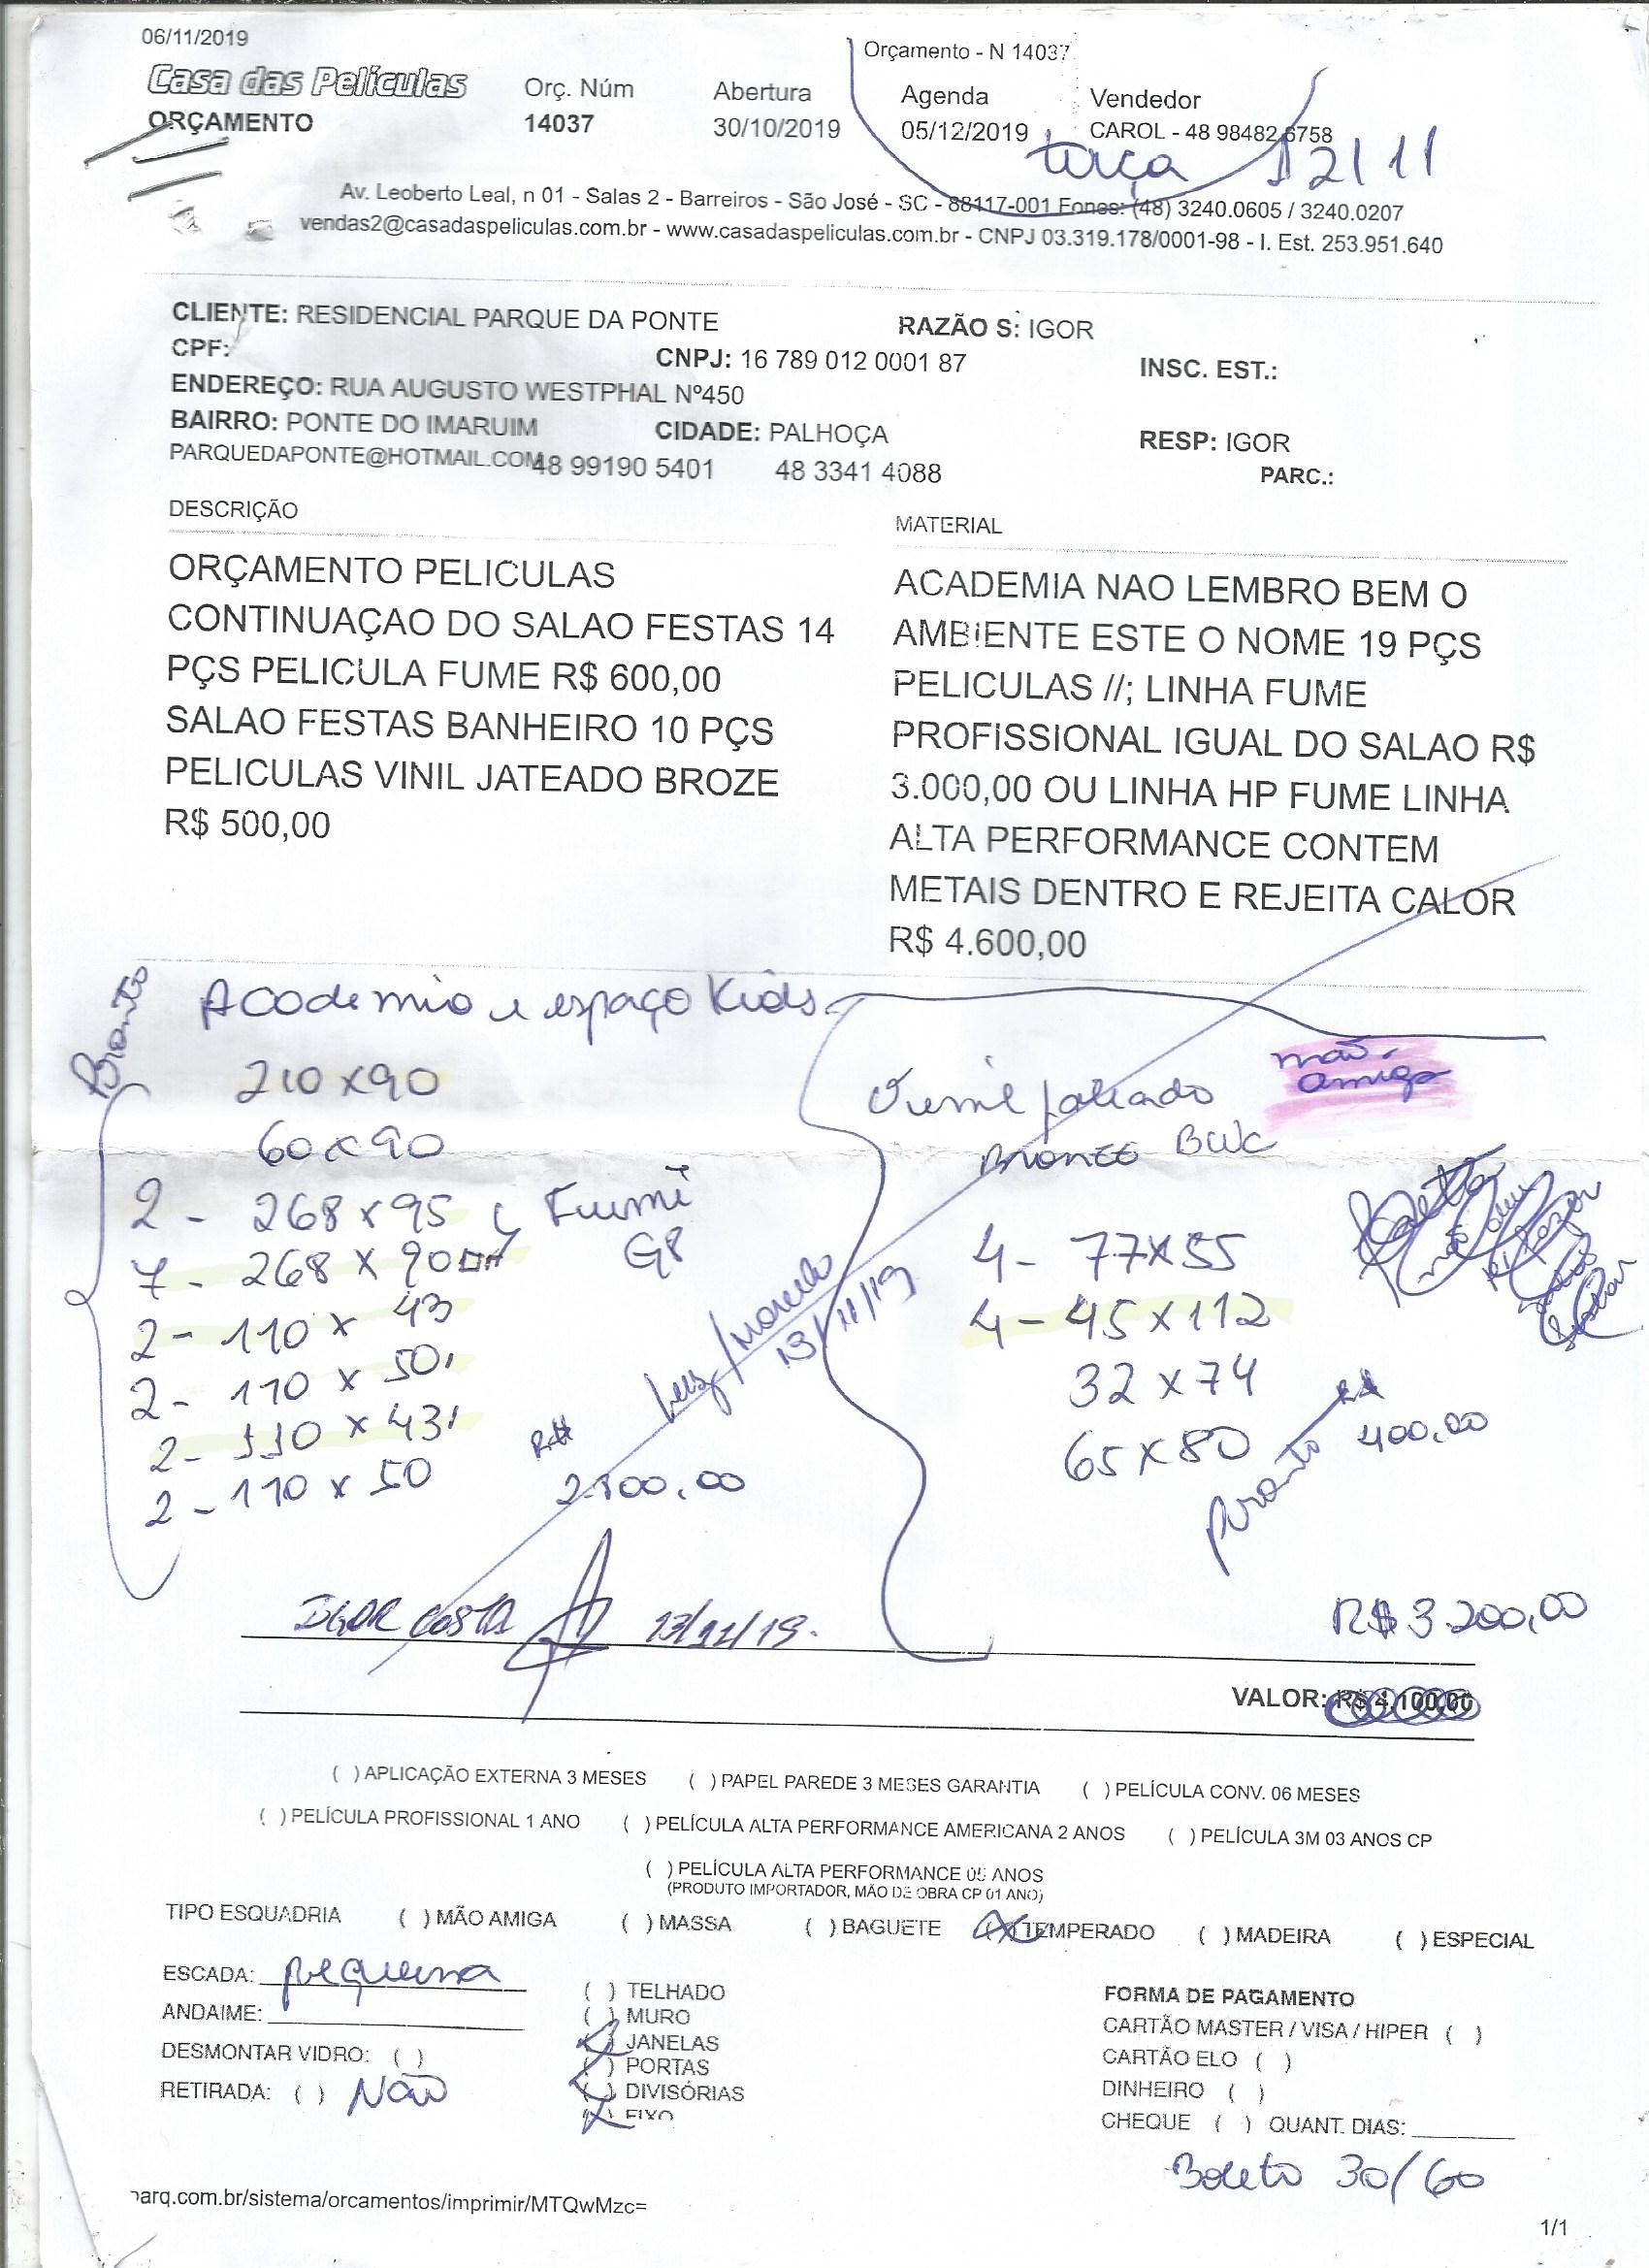 06/11/2019
Orçamento - N 14037
Casa das Películas
ORÇAMENTO
Orç. Núm
14037
Abertura
30/10/2019
Agenda
05/12/2019
Vendedor
CAROL - 48 98482 6758
terça 12/11
Av. Leoberto Leal, n 01 - Salas 2 - Barreiros - São José - SC - 88117-001 Fones: (48) 3240.0605 / 3240.0207
vendas2@casadaspeliculas.com.br - www.casadaspeliculas.com.br - CNPJ 03.319.178/0001-98 - I. Est. 253.951.640
CLIENTE: RESIDENCIAL PARQUE DA PONTE
RAZÃO S: IGOR
CPF:
CNPJ: 16 789 012 0001 87
INSC. EST.:
ENDEREÇO: RUA AUGUSTO WESTPHAL Nº450
BAIRRO: PONTE DO IMARUIM
CIDADE: PALHOÇA
RESP: IGOR
PARQUEDAPONTE@HOTMAIL.COM
48 99190 5401
48 3341 4088
PARC.:
DESCRIÇÃO
ORÇAMENTO PELICULAS
CONTINUAÇAO DO SALAO FESTAS 14
PÇS PELICULA FUME R$ 600,00
SALAO FESTAS BANHEIRO 10 PÇS
PELICULAS VINIL JATEADO BROZE
R$ 500,00
MATERIAL
ACADEMIA NAO LEMBRO BEM O
AMBIENTE ESTE O NOME 19 PÇS
PELICULAS //; LINHA FUME
PROFISSIONAL IGUAL DO SALAO R$
3.000,00 OU LINHA HP FUME LINHA
ALTA PERFORMANCE CONTEM
METAIS DENTRO E REJEITA CALOR
R$ 4.600,00
Academia e espaço Kids
210 x 90
60 x 90
2 - 268 x 95
7 - 268 x 90
Fumê
G8
2 - 110 x 43
2 - 110 x 50
2 - 110 x 43
2 - 110 x 50
R$
2.800,00
Luiz/Marcelo
13/11/19
mão
amiga
Vinil jateado
Branco BWC
4 - 77x55
4 - 45x112
32 x 74
65 x 80
pronto
R$
400,00
IGOR COSTA 13/11/19.
R$ 3.200,00
VALOR: R$ 4.100,00
( ) APLICAÇÃO EXTERNA 3 MESES ( ) PAPEL PAREDE 3 MESES GARANTIA ( ) PELÍCULA CONV. 06 MESES
( ) PELÍCULA PROFISSIONAL 1 ANO ( ) PELÍCULA ALTA PERFORMANCE AMERICANA 2 ANOS ( ) PELÍCULA 3M 03 ANOS CP
( ) PELÍCULA ALTA PERFORMANCE 05 ANOS
(PRODUTO IMPORTADOR, MÃO DE OBRA CP 01 ANO)
TIPO ESQUADRIA ( ) MÃO AMIGA ( ) MASSA ( ) BAGUETE (X) TEMPERADO ( ) MADEIRA ( ) ESPECIAL
ESCADA: pequena
ANDAIME:
DESMONTAR VIDRO: ( )
RETIRADA: ( ) Não
( ) TELHADO
( ) MURO
(X) JANELAS
( ) PORTAS
(X) DIVISÓRIAS
(X) FIXO
FORMA DE PAGAMENTO
CARTÃO MASTER / VISA / HIPER ( )
CARTÃO ELO ( )
DINHEIRO ( )
CHEQUE ( ) QUANT. DIAS:
Boleto 30/60
arq.com.br/sistema/orcamentos/imprimir/MTQwMzc=
1/1